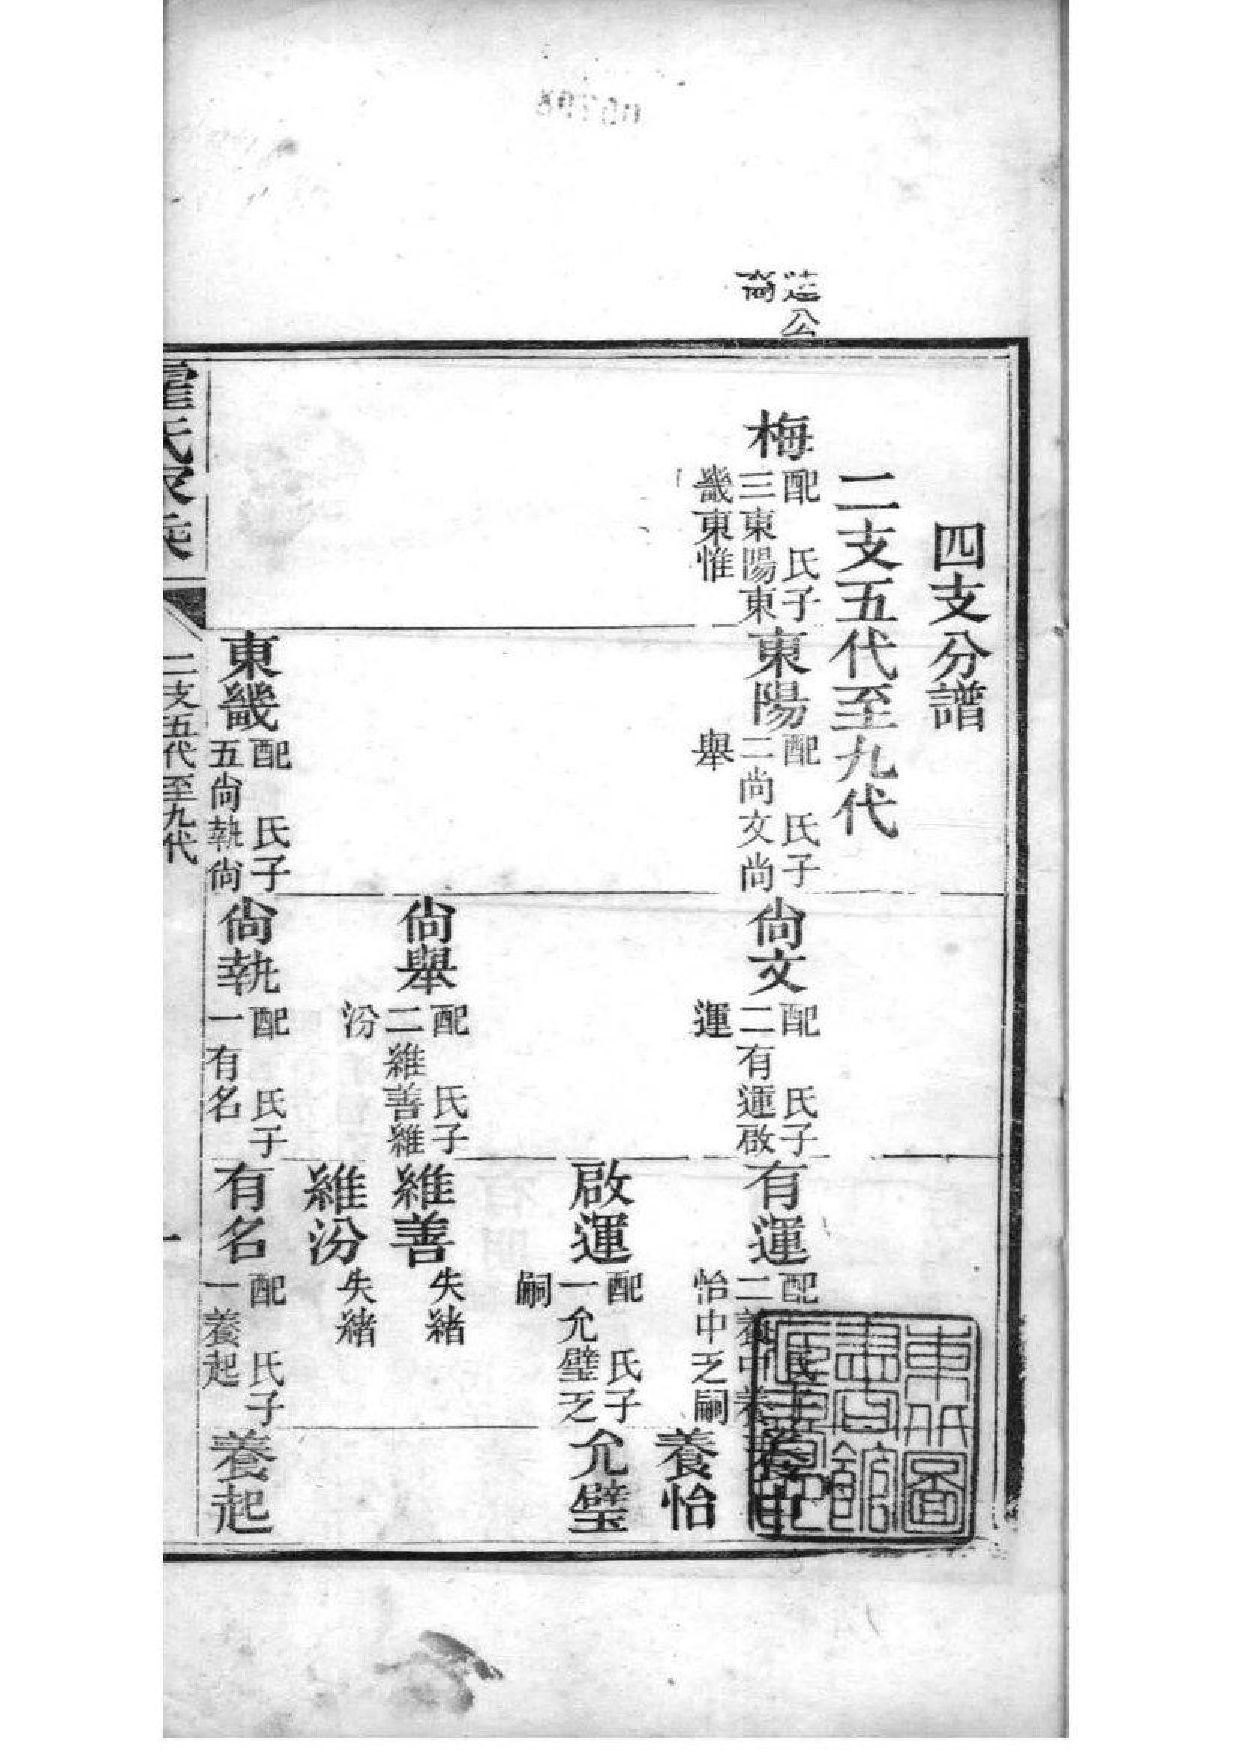 公
裔
四支分譜
二支五代至九代
梅
配　氏子
三東陽東
畿東惟
東陽
配　氏子
二尚文尚
舉
尚文
配　氏子
二有運啟
運
有運
配　氏子
二養中養
怡中乏嗣
養中
養怡
啟運
配　氏子
一允璧乏
嗣
允璧
尚舉
配　氏子
二維善維
汾
維善
失緒
維汾
失緒
東畿
配　氏子
五尚執尚
尚執
配　氏子
一有名
有名
配　氏子
一養起
養起
二支五代至九代
一